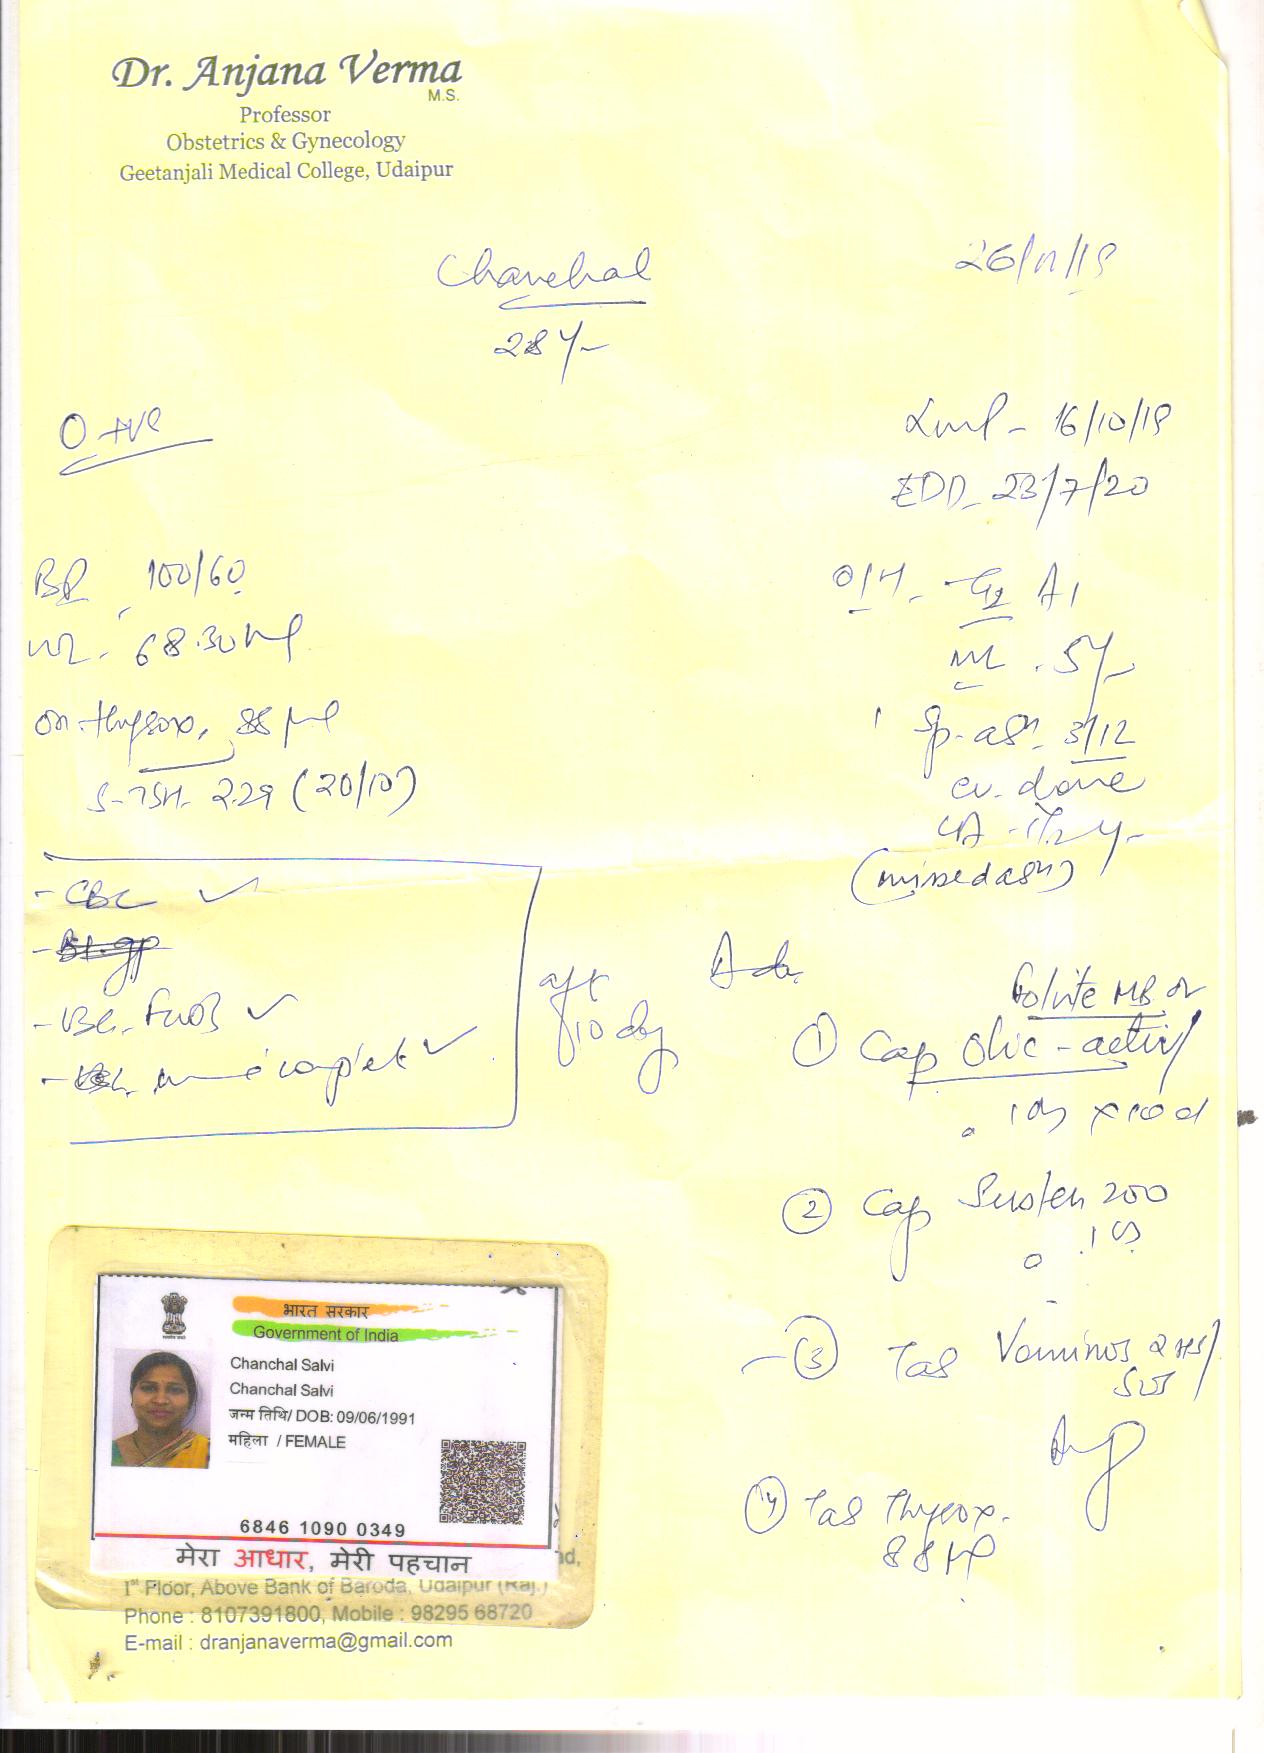 Dr. Anjana Verma
M.S.
Professor
Obstetrics & Gynecology
Geetanjali Medical College, Udaipur
Chanchal
26/11/19
28 y
O +ve
Lmp - 16/10/19
EDD - 23/7/20
BP 100/60
wt - 68.30 kg
on thyrox, 88 μg
S-TSH - 2.29 (20/10)
O/H - G2 A1
ML . 5y
Sp. abn 3/12
done
LA - 1½ y
(missed abn)
- CBC ✓
- Bl. gp
✓
complet ✓
aft 10 day
Adv.
Folvite MB or
① Cap Olic-
1 OD x
② Cap Susten 200
③ Tab
SOS
④ Tab Thyrox
88 μg
भारत सरकार
Government of India
Chanchal Salvi
Chanchal Salvi
जन्म तिथि/ DOB: 09/06/1991
महिला / FEMALE
6846 1090 0349
मेरा आधार, मेरी पहचान
1st Floor, Above Bank of Baroda, Udaipur (Raj.)
Phone : 8107391800, Mobile : 98295 68720
E-mail : dranjanaverma@gmail.com